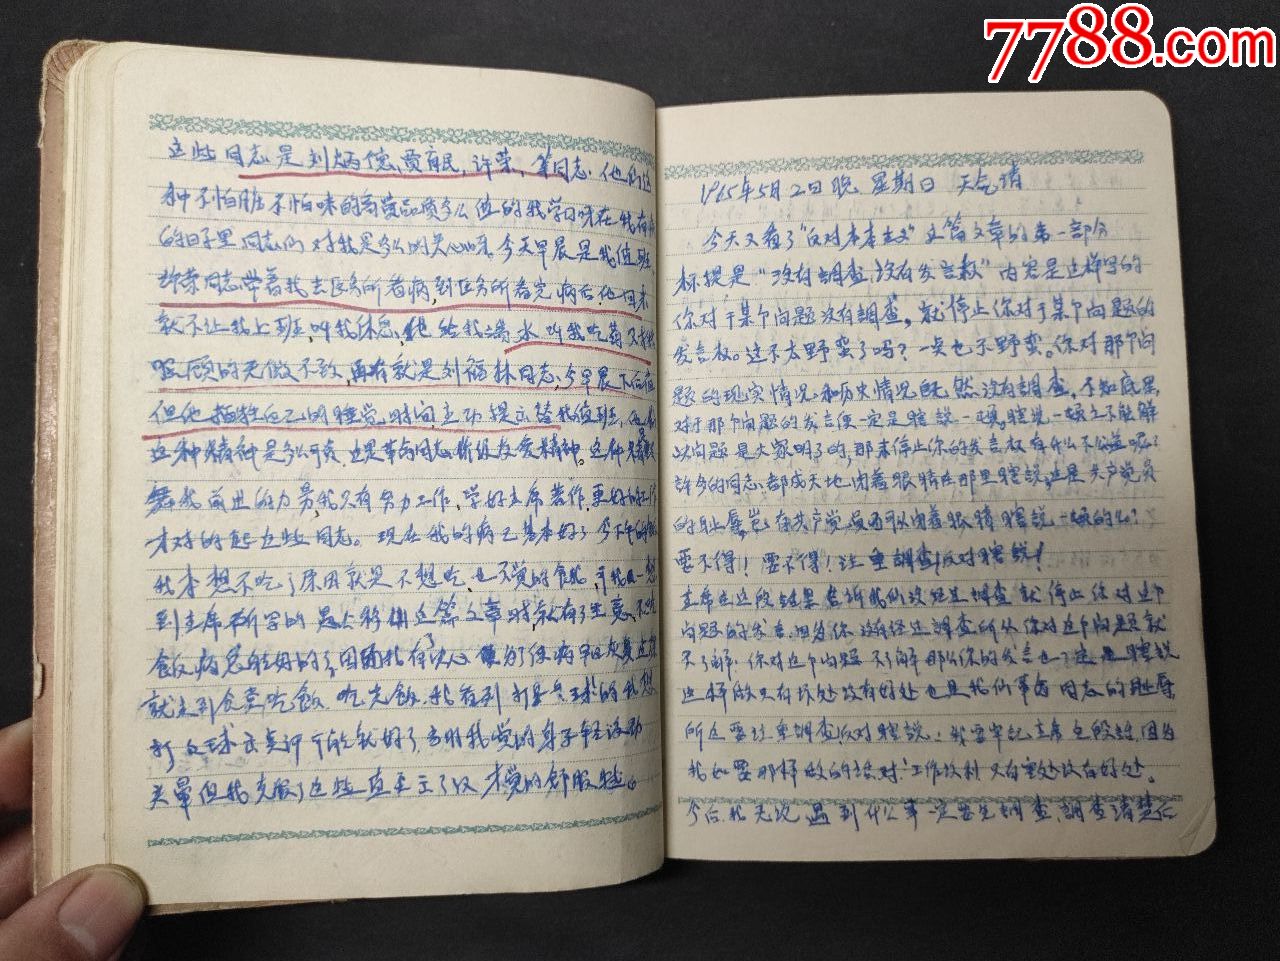 7788.com
这些同志是刘炳信、贾有民、许荣，等同志。他们这
种不怕脏不怕味的高贵品质多么值的我学习呀在我有病
的日子里同志们对我是多么的关心呀。今天早晨是我值班
许荣同志带着我去医务所看病，到医务所看完病后他回来
就不让我上班叫我休息，他给我端水叫我吃药又
照顾的无微不致，再有就是刘福林同志，今早晨下
但他牺牲自己的睡觉时间主动提出替我值班，他
这种精神是多么可贵，这是革命同志阶级友爱精神。这种
舞我前进的力量，我只有努力工作，学好主席著作，更好的工作
才对的起这些同志。现在我的病已基本好了今下午的
我本想不吃了原因就是不想吃也不觉的饿，可我一想
到主席所写的愚公移山这篇文章时，就有了主意，不吃
饭病怎能好的了，因此我有了决心为了使病早日恢复这
就走到食堂吃饭，吃完饭，我看到打乒乓球的我想
打打球出点汗可能就好了当时我觉的身子
头晕但我克服了这些直至出了汗才觉的舒服些。
1965年5月2日晚 星期日 天气晴
今天又看了“反对本本主义”这篇文章的第一部分
标提是“没有调查，没有发言权”内容是这样写的
你对于某个问题没有调查，就停止你对于某个问题的
发言权。这不太野蛮了吗？一点也不野蛮。你对那个问
题的现实情况和历史情况既然没有调查，不知底里，
对于那个问题的发言便一定是瞎说一顿。瞎说一顿之不能解
决问题是大家明了的，那末停止你的发言权有什么不公道呢？
许多的同志都成天地闭着眼睛在那里瞎说，这是共产党员
的耻辱，岂有共产党员而可以闭着眼睛瞎说一顿的么？
要不得！要不得！注重调查反对瞎说！
主席在这段话里告诉我们没经过调查就停止你对这个
问题的发言，因为你没有经过调查所以你对这个问题就
不了解，你对这个问题不了解那么你的发言也一定是瞎说
这样做只有坏处没有好处也是我们革命同志的耻辱
所以要注重调查反对瞎说，我要牢记主席这段话，因为
我如要那样做的话，对工作不利只有害处没有好处。
今后，我无论遇到什么事一定要先调查，调查清楚后